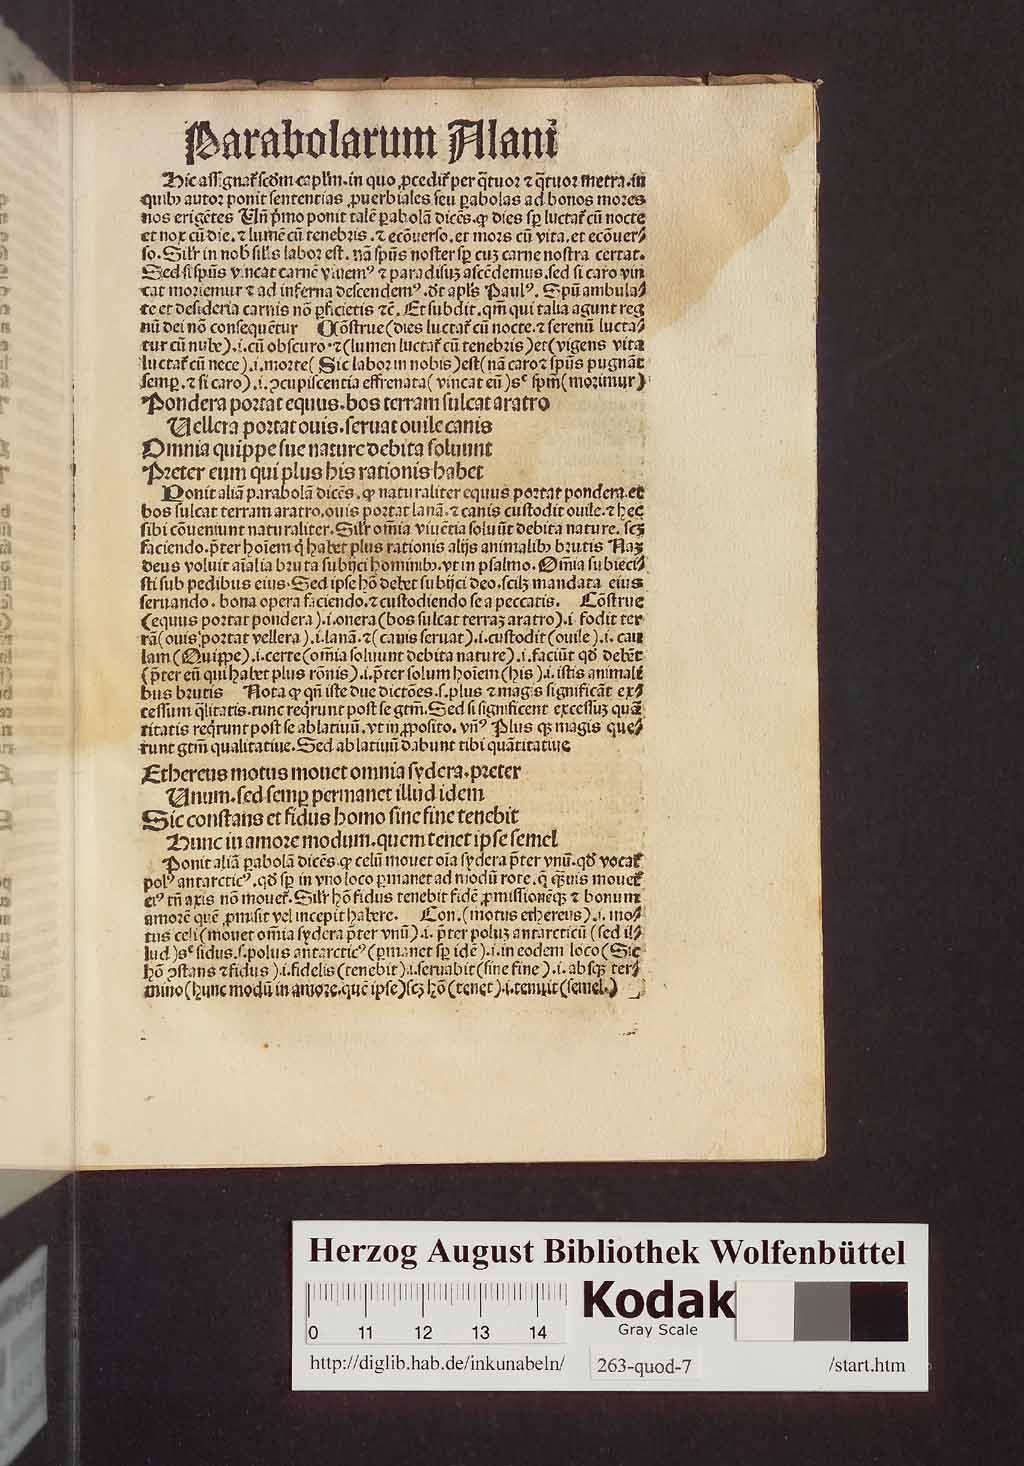 Parabolarum Alani
Hic assignat᷑ scd̄m capl̄m. in quo ꝓcedit᷑ per q̄tuor ⁊ q̄tuor metra. in
quibꝰ autor ponit sententias ꝓuerbiales seu ꝑabolas ad bonos mores
nos erigētes Un̄ pͥmo ponit talē ꝑabolā dicēs. ꝙ dies sꝑ luctat᷑ cū nocte
et nox cū die. ⁊ lumē cū tenebris. ⁊ ecōuerso. et mors cū vita. et ecōuer⸗
so. Sil̄r in nob̄ sil̄is labor est. nā spūs noster sꝑ cuꝫ carne nostra certat.
Sed si spūs vincat carnē viuemꝰ ⁊ paradisuꝫ ascēdemus. sed si caro vin
cat moriemur ⁊ ad inferna descendemꝰ. vt apl̄s Paulꝰ. Spū ambula⸗
te et desideria carnis nō ꝑficietis ⁊c̄. Et subdit. qm̄ qui talia agunt reg
nū dei nō consequētur Cōstrue (dies luctat᷑ cū nocte. ⁊ serenū lucta⸗
tur cū nube). i. cū obscuro. ⁊ (lumen luctat᷑ cū tenebris) et (vigens vita
luctat᷑ cū nece). i. morte (Sic labor in nobis) est (nā caro ⁊ spūs pugnāt
semꝑ. ⁊ si caro). i. ꝯcupiscentia effrenata (vincat eū) sͨ spm̄ (morimur)
Pondera portat equus. bos terram sulcat aratro
Uellera portat ouis. seruat ouile canis
Omnia quippe sue nature debita soluunt
Preter eum qui plus his rationis habet
Ponit aliā parabolā dicēs. ꝙ naturaliter equus portat pondera. et
bos sulcat terram aratro. ouis portat lanā. ⁊ canis custodit ouile. ⁊ hec
sibi cōueniunt naturaliter. Sil̄r om̄ia viuētia soluūt debita nature. scꝫ
faciendo. p̄ter hoīem qͥ habet plus rationis alijs animalibꝰ brutis Naꝫ
deus voluit aīalia bruta subijci hominibꝰ. vt in psalmo. Om̄ia subieci⸗
sti sub pedibus eius. Sed ipse hō debet subijci deo. scilꝫ mandata eius
seruando. bona opera faciendo. ⁊ custodiendo se a peccatis. Cōstrue
(equus portat pondera). i. onera (bos sulcat terraꝫ aratro). i. fodit ter
rā (ouis portat vellera). i. lanā. ⁊ (canis seruat). i. custodit (ouile). i. cau
lam (Quippe). i. certe (om̄ia soluunt debita nature). i. faciūt qd̄ debēt
(p̄ter eū qui habet plus rōnis). i. p̄ter solum hoīem (his). i. istis animali
bus brutis Nota ꝙ qn̄ iste due dictōes. s. plus ⁊ magis significāt ex⸗
cessum q̄litatis. tunc reqͥrunt post se gtm̄. Sed si significent excessuꝫ quā
titatis reqͥrunt post se ablatiuū. vt in ꝓposito. vn̄ꝰ Plus qꝫ magis que⸗
runt gtm̄ qualitatiue. Sed ablatiuū dabunt tibi quātitatiue
Ethereus motus mouet omnia sydera. preter
Unum. sed semꝑ permanet illud idem
Sic constans et fidus homo sine fine tenebit
Hunc in amore modum. quem tenet ipse semel
Ponit aliā ꝑabolā dicēs. ꝙ celū mouet oīa sydera p̄ter vnū. qd̄ vocat᷑
polꝰ antarcticꝰ. qd̄ sꝑ in vno loco ꝑmanet ad modū rote. q̄ q̄uis mouet᷑
eiꝰ tn̄ axis nō mouet᷑. Sil̄r hō fidus tenebit fidē ꝓmissionēqꝫ ⁊ bonum
amorē quē ꝓmisit vel incepit habere. Con. (motus ethereus). i. mo⸗
tus celi (mouet om̄ia sydera p̄ter vnū). i. p̄ter poluꝫ antarcticū (sed il⸗
lud) sͨ sidus. s. polus antarcticꝰ (ꝑmanet sꝑ idē). i. in eodem loco (Sic
hō ꝯstans ⁊ fidus). i. fidelis (tenebit). i. seruabit (sine fine). i. absqꝫ ter⸗
mino (hunc modū in amore. quē ipse) scꝫ hō (tenet). i. tenuit (semel.)
Herzog August Bibliothek Wolfenbüttel
0 11 12 13 14
Kodak
Gray Scale
http://diglib.hab.de/inkunabeln/ 263-quod-7 /start.htm